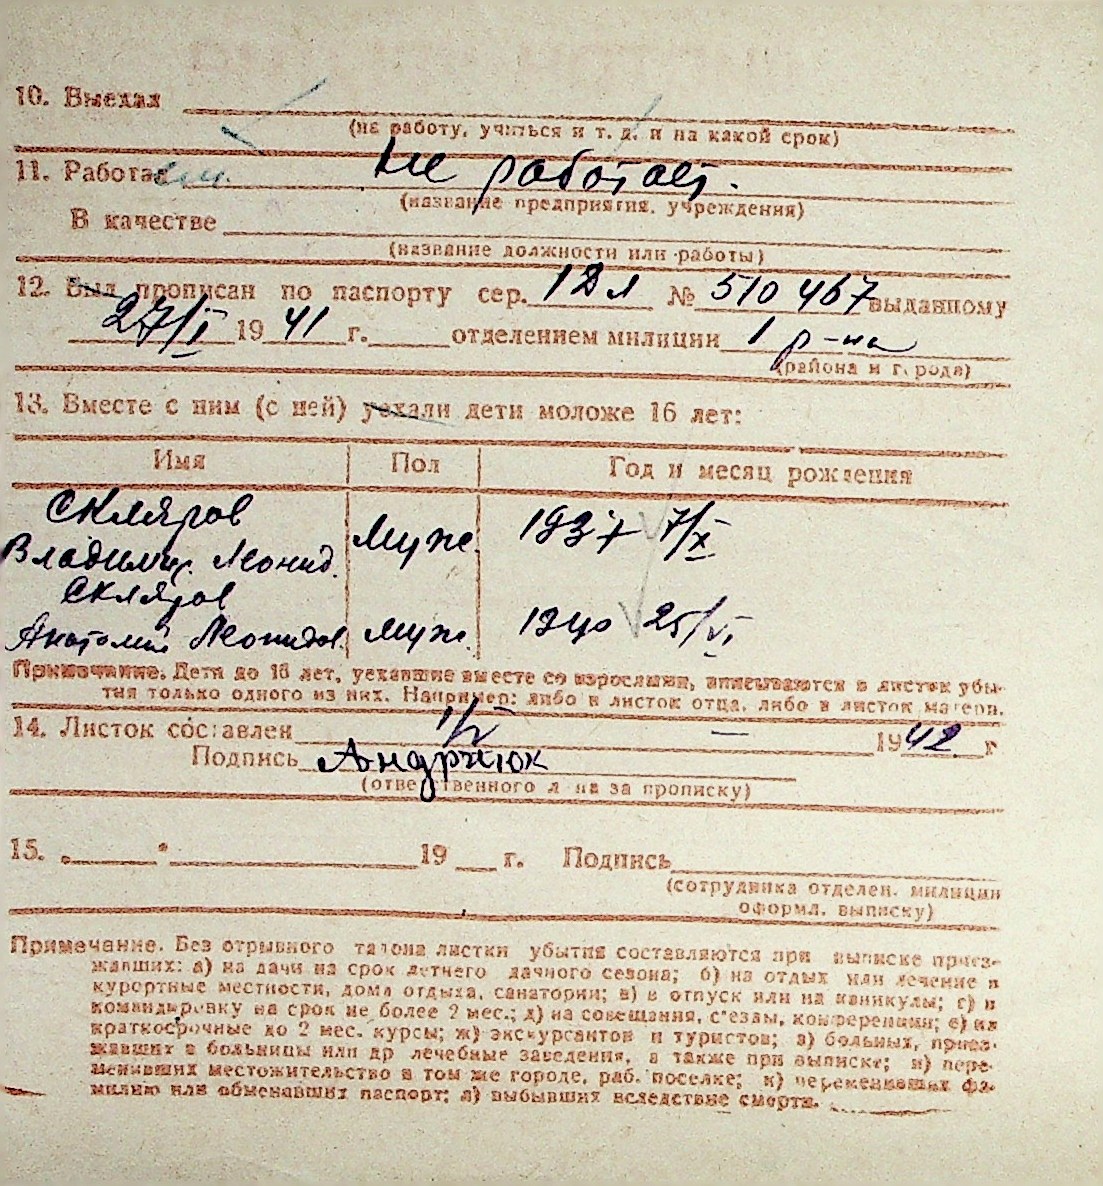 10. Выехал
(на работу, учиться и т. д. и на какой срок)
11. Работает Не работает.
(название предприятия, учреждения)
В качестве
(название должности или работы)
12. Был прописан по паспорту сер. 12 л № 510 467 выданному
27/I 1941 г. отделением милиции 1 р-на
(района и города)
13. Вместе с ним (с ней) уехали дети моложе 16 лет:
Имя Пол Год и месяц рождения
Скляров
Владимир. Леонид. Муж. 1937 7/X
Скляров
Анатолий Леонидов. Муж. 1940 25/VI
Примечание. Дети до 16 лет, уехавшие вместе со взрослыми, вписываются в листок убы-
тия только одного из них. Например: либо в листок отца, либо в листок матери.
14. Листок составлен 1/V — 1942 г
Подпись Андриюк
(ответственного л на за прописку)
15. „ “ 19 г. Подпись
(сотрудника отделен. милиции
оформл. выписку)
Примечание. Без отрывного талона листки убытия составляются при выписке приез-
жавших: а) на дачи на срок летнего дачного сезона; б) на отдых или лечение в
курортные местности, дома отдыха, санатории; в) в отпуск или на каникулы; г) в
командировку на срок не более 2 мес.; д) на совещания, с'езды, конференции; е) на
краткосрочные до 2 мес. курсы; ж) экскурсантов и туристов; з) больных, приез-
жавших в больницы или др лечебные заведения, а также при выписке; и) пере-
менивших местожительство в том же городе, раб. поселке; к) переменивших фа-
милию или обменявших паспорт; л) выбывших вследствие смерти.